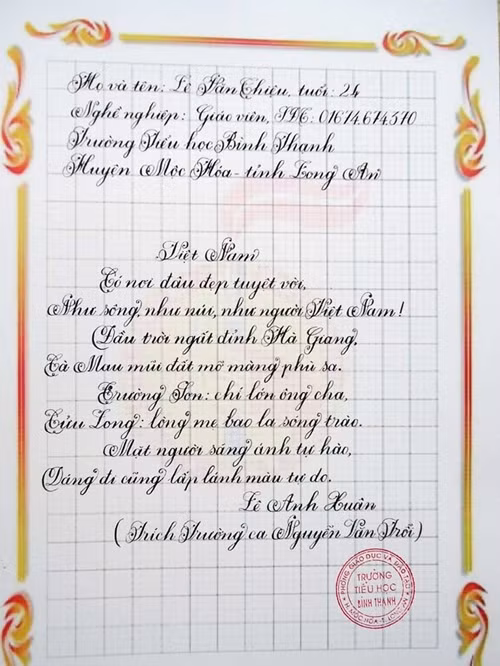 Họ và tên: Lê Tấn Thiệu, tuổi: 24
Nghề nghiệp: Giáo viên, ĐT: 01674.674.370
Trường Tiểu học Bình Thạnh
Huyện Mộc Hóa - tỉnh Long An
Việt Nam
Có nơi đâu đẹp tuyệt vời,
Như sông, như núi, như người Việt Nam!
Đầu trời ngất đỉnh Hà Giang,
Cà Mau mũi đất mỡ màng phù sa.
Trường Sơn: chí lớn ông cha,
Cửu Long: lòng mẹ bao la sóng trào.
Mặt người sáng ánh tự hào,
Dáng đi cũng lấp lánh màu tự do.
Lê Anh Xuân
(Trích Trường ca Nguyễn Văn Trỗi)
PHÒNG GIÁO DỤC VÀ ĐÀO TẠO
TRƯỜNG
TIỂU HỌC
BÌNH THẠNH
H. MỘC HÓA - T. LONG AN